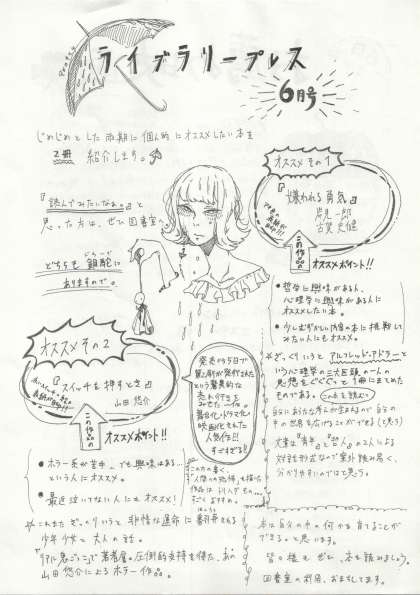 ライブラリープレス
6月号
じめじめとした雨期に個人的にオススメしたい本を
2冊 紹介します。
『読んでみたいなぁ。』と
思った方は、ぜひ図書室へ
どちらも
ありますので。
オススメ その1
『嫌われる勇気』
岸見一郎
古賀史健
この作品の
オススメポイント!!
●哲学に興味がある人、
心理学に興味がある人に
オススメしたい本。
●少しむずかしい内容の本に挑戦して
みたい人にもオススメ。
ざっくりいうと アルフレッド・アドラーと
いう心理学の三大巨頭の一人の
思想をぐぐぐっと1冊にまとめた
ものである。この本を読むと
自分にあたな考えが生まれるので自分の
中の世界を広げることができる(と思う)
文章は『青年』と『哲人』の2人による
対話形式なので案外読み易く、
分かりやすいのではと思う。
オススメ その2
『スイッチを押すとき』
山田 悠介
この作品の
オススメポイント!!
●ホラー系が苦手…でも興味はある…
という人にオススメ。
●最近泣いてない人にもオススメ!
これもまたざっくりいうと 非情な運命に翻弄される
少年少女と大人の話。
『リアル鬼ごっこ』で著者層の圧倒的支持を得た、あの
山田悠介によるホラー作品。
発売から5日で
重版が発行された
という驚異的な
売れ行きを
みせた一作。
舞台化・ドラマ化・
映画化もされた
人気作!!
すごすぎる!!
本は自分の中の何かを育てることが
できると思います。
皆さまもぜひ、本を読みましょう。
図書室の利用、お待ちしてます。